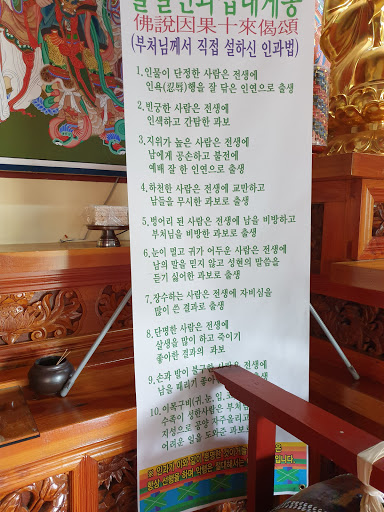 佛說因果十來偈頌
(부처님께서 직접 설하신 인과법)
1.인물이 단정한 사람은 전생에
인욕(忍辱)행을 잘 닦은 인연으로 출생
2.빈궁한 사람은 전생에
인색하고 간탐한 과보
3.지위가 높은 사람은 전생에
남에게 공손하고 불전에
예배 잘 한 인연으로 출생
4.하천한 사람은 전생에 교만하고
남들을 무시한 과보로 출생
5.벙어리 된 사람은 전생에 남을 비방하고
부처님을 비방한 과보로 출생
6.눈이 멀고 귀가 어두운 사람은 전생에
남의 말을 믿지 않고 성현의 말씀을
듣기 싫어한 과보로 출생
7.장수하는 사람은 전생에 자비심을
많이 쓴 결과로 출생
8.단명한 사람은 전생에
살생을 많이 하고 죽이기
좋아한 결과의 과보
9.손과 발이 불구한 사람은 전생에
남을 때리기 좋아
10.이목구비(귀,눈,입,코
수족이 성한사람은 부처님
지성으로 공양 자주올리고
어려운 일을 도와준 과보